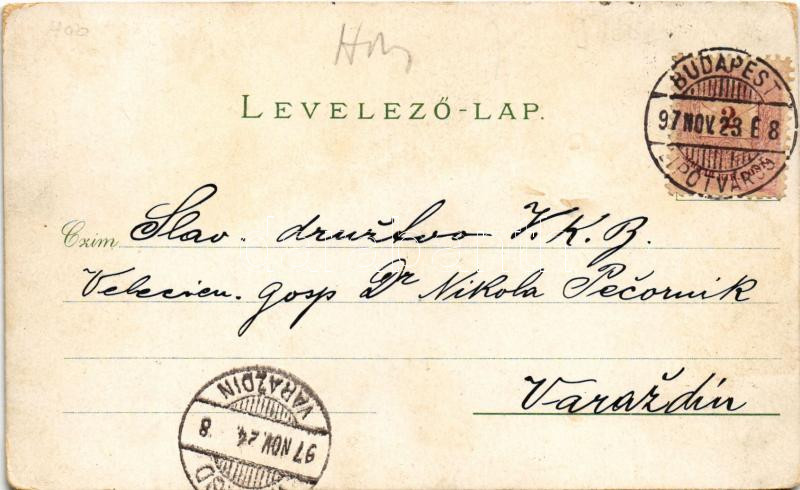 LEVELEZŐ-LAP.
BUDAPEST
97 NOV. 23 É 8
LIPÓTVÁROS
2
Czim Slav. družtvo K. K. B.
gosp Dr Nikola Pečornik
Varaždin
VARAŽDIN
97 NOV. 24. 8